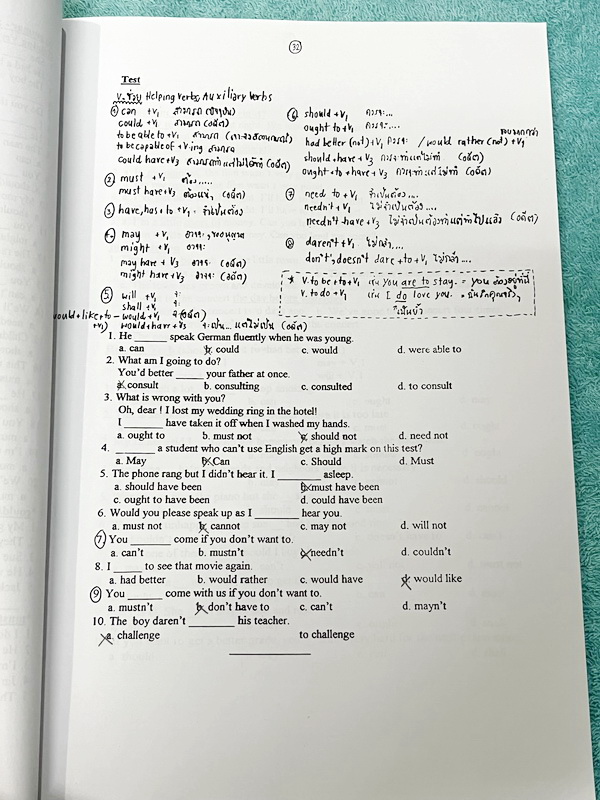 32
Test
V. ช่วย Helping Verbs, Auxiliary Verbs
① can +V₁ สามารถ (ปัจจุบัน)
could +V₁ สามารถ (อดีต)
to be able to +V₁ สามารถ
to be capable of +V.ing สามารถ
could have +V₃ สามารถทำแต่ไม่ได้ทำ (อดีต)
② must +V₁ ต้อง.....
must have +V₃ (อดีต)
③ have, has + to +V₁ จำเป็นต้อง
④ may +V₁ อาจจะ, ขออนุญาต
might +V₁ อาจจะ
may have +V₃ อาจจะ (อดีต)
might have +V₃ อาจจะ (อดีต)
⑤ will +V₁ จะ
shall +V₁ จะ
would +V₁ จะ (อดีต)
would + like + to
+V₁)
would + have +V₃ จะเป็น... แต่ไม่เป็น (อดีต)
⑥ should +V₁ ควรจะ...
ought to +V₁ ควรจะ....
had better (not) +V₁ ควรจะ / would rather (not) +V₁
should + have +V₃ ควรจะทำแต่ไม่ทำ (อดีต)
ought + to + have +V₃ ควรจะทำแต่ไม่ทำ (อดีต)
⑦ need to +V₁ จำเป็นต้อง...
needn't +V₁ ไม่จำเป็นต้อง...
needn't have +V₃ ไม่จำเป็นต้องทำแต่ทำไปแล้ว (อดีต)
⑧ daren't +V₁ ไม่กล้า....
don't, doesn't dare + to +V₁ ไม่กล้า....
* V. to be + to +V₁ เช่น you are to stay. = you ต้องอยู่ที่นี่
V. to do +V₁ เช่น I do love you.
1. He ______ speak German fluently when he was young.
a. can b. could c. would d. were able to
2. What am I going to do?
You'd better _____ your father at once.
a. consult b. consulting c. consulted d. to consult
3. What is wrong with you?
Oh, dear ! I lost my wedding ring in the hotel!
I _______ have taken it off when I washed my hands.
a. ought to b. must not c. should not d. need not
4. _______ a student who can't use English get a high mark on this test?
a. May b. Can c. Should d. Must
5. The phone rang but I didn't hear it. I ________ asleep.
a. should have been b. must have been
c. ought to have been d. could have been
6. Would you please speak up as I ________ hear you.
a. must not b. cannot c. may not d. will not
7. You _______ come if you don't want to.
a. can't b. mustn't c. needn't d. couldn't
8. I _____ to see that movie again.
a. had better b. would rather c. would have d. would like
9. You ______ come with us if you don't want to.
a. mustn't b. don't have to c. can't d. mayn't
10. The boy daren't ________ his teacher.
a. challenge to challenge